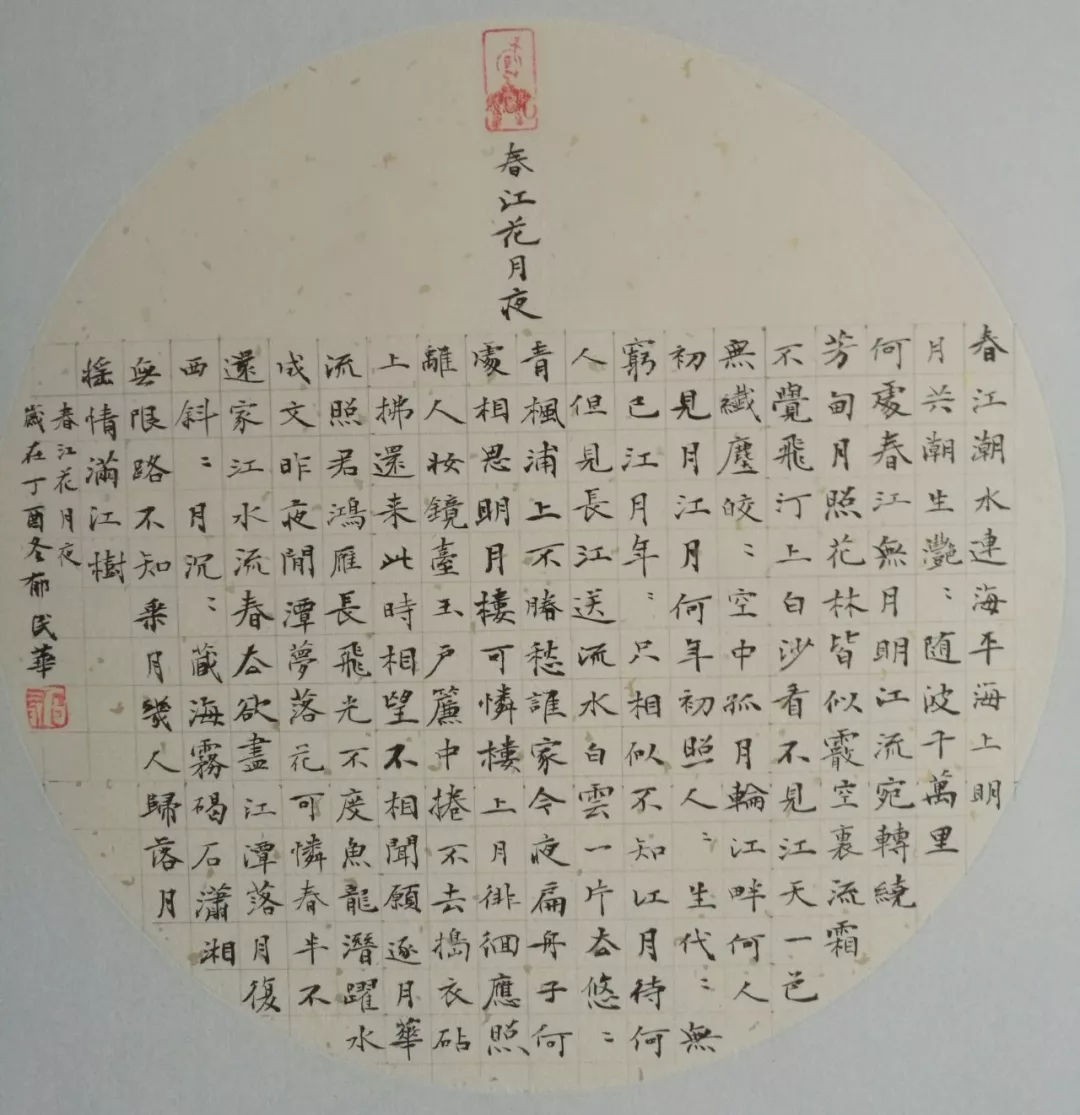 春江花月夜
春江潮水連海平海上明
月共潮生灩〻随波千萬里
何處春江無月明江流宛轉繞
芳甸月照花林皆似霰空裏流霜
不覺飛汀上白沙看不見江天一色
無纖塵皎〻空中孤月輪江畔何人
初見月江月何年初照人〻生代〻無
窮已江月年〻只相似不知江月待何
人但見長江送流水白雲一片去悠〻
青楓浦上不勝愁誰家今夜扁舟子何
處相思明月樓可憐樓上月徘徊應照
離人妝鏡臺玉户簾中捲不去搗衣砧
上拂還来此時相望不相聞願逐月華
流照君鴻雁長飛光不度魚龍潛躍水
成文昨夜閒潭夢落花可憐春半不
還家江水流春去欲盡江潭落月復
西斜〻月沉〻藏海霧碣石瀟湘
無限路不知乘月幾人歸落月
摇情滿江樹
春江花月夜
歲在丁酉冬郁民華